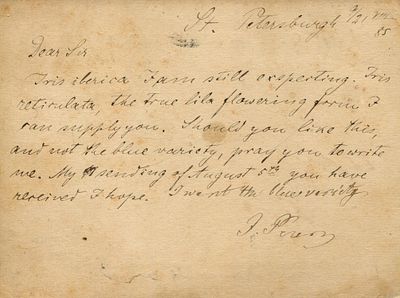 St. Petersburgh
Dear Sir
Iris iberica I am still exspecting. Iris
reticulata, the true lila flowering form I
can supply you. Should you like this,
and not the blue variety, pray you to write
me. My sending of August 5th you have
received I hope. I want the blue variety